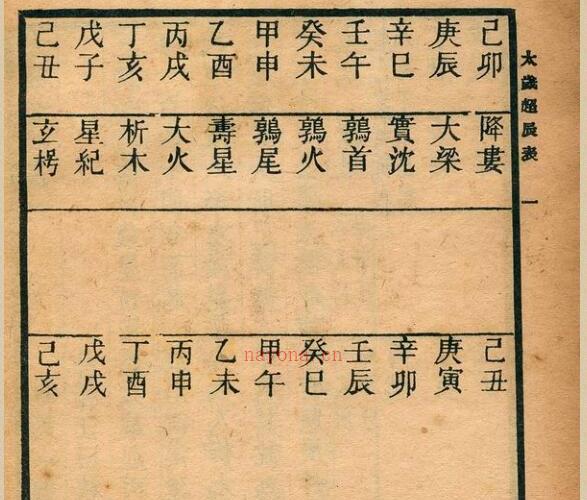 太歲超辰表 一
己卯 降婁 己丑
庚辰 大梁 庚寅
辛巳 實沈 辛卯
壬午 鶉首 壬辰
癸未 鶉火 癸巳
甲申 鶉尾 甲午
乙酉 壽星 乙未
丙戌 大火 丙申
丁亥 析木 丁酉
戊子 星紀 戊戌
己丑 玄枵 己亥
nayona.cn